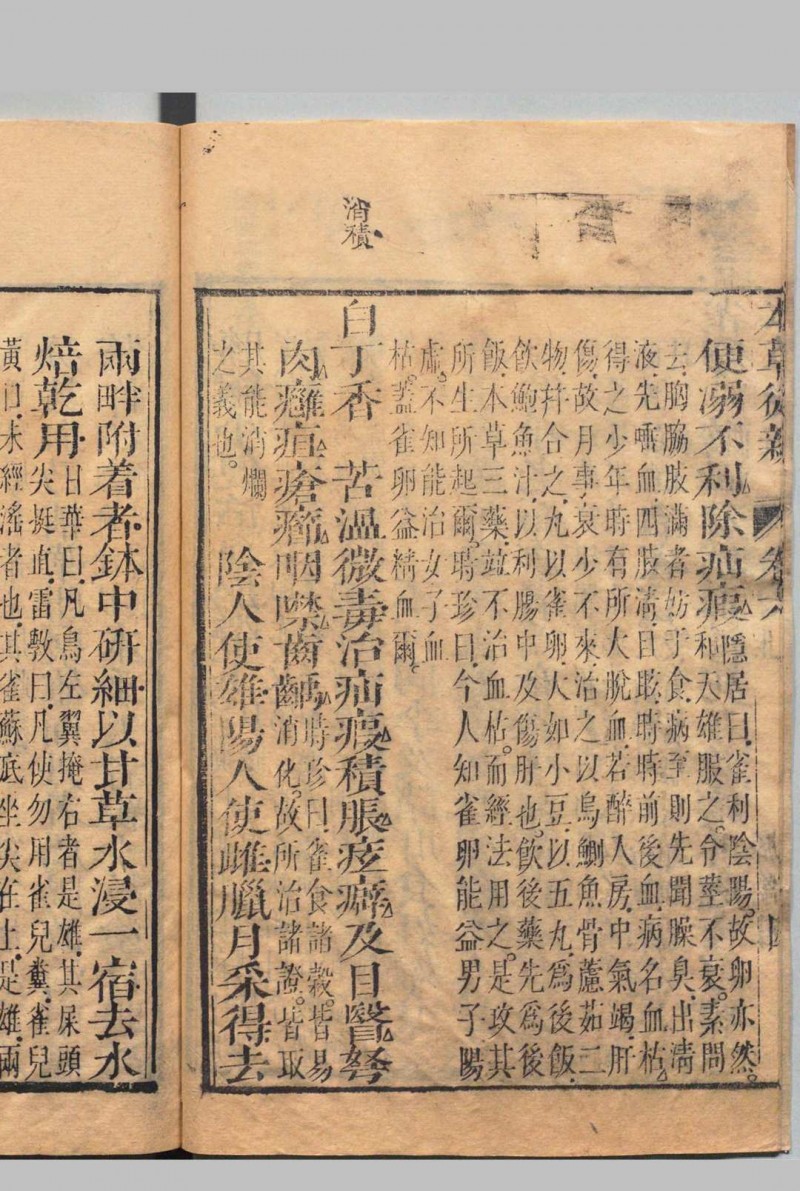 本草從新
卷六
便溺不利除疝瘕
隱居曰雀利陰陽。故卵亦然。
和天雄服之。令莖不衰。素問
去胸脇肢滿者妨于食病至則先聞臊臭出淸
液先唾血四肢淸目眩時時前後血病名血枯
得之少年時有所大脫血若醉入房中氣竭肝
傷故月事衰少不來治之以烏鰂魚骨藘茹二
物幷合之丸以雀卵大如小豆以五丸爲後飯
飲鮑魚汁以利腸中及傷肝也。飲後藥先爲後
飯本草三藥並不治血枯。而經法用之。是攻其
所生所起爾。時珍曰今人知雀卵能益男子陽
虛。不知能治女子血
枯。蓋雀卵益精血爾。
消積
白丁香 苦温微毒治疝瘕積脹痃癖及目瞖努
肉癰疽瘡癤咽噤齒齲
時珍曰雀食諸穀。皆易
消化。故所治諸證。皆取
其能消爛
之義也。
陰人使雄陽人使雌臘月采得去
兩畔附着者鉢中研細以甘草水浸一宿去水
焙乾用
日華曰凡鳥左翼掩右者是雄其屎頭
尖挺直雷斆曰凡使勿用雀兒糞雀兒
黃口未經滛者也其雀蘇底坐尖在上是雄兩